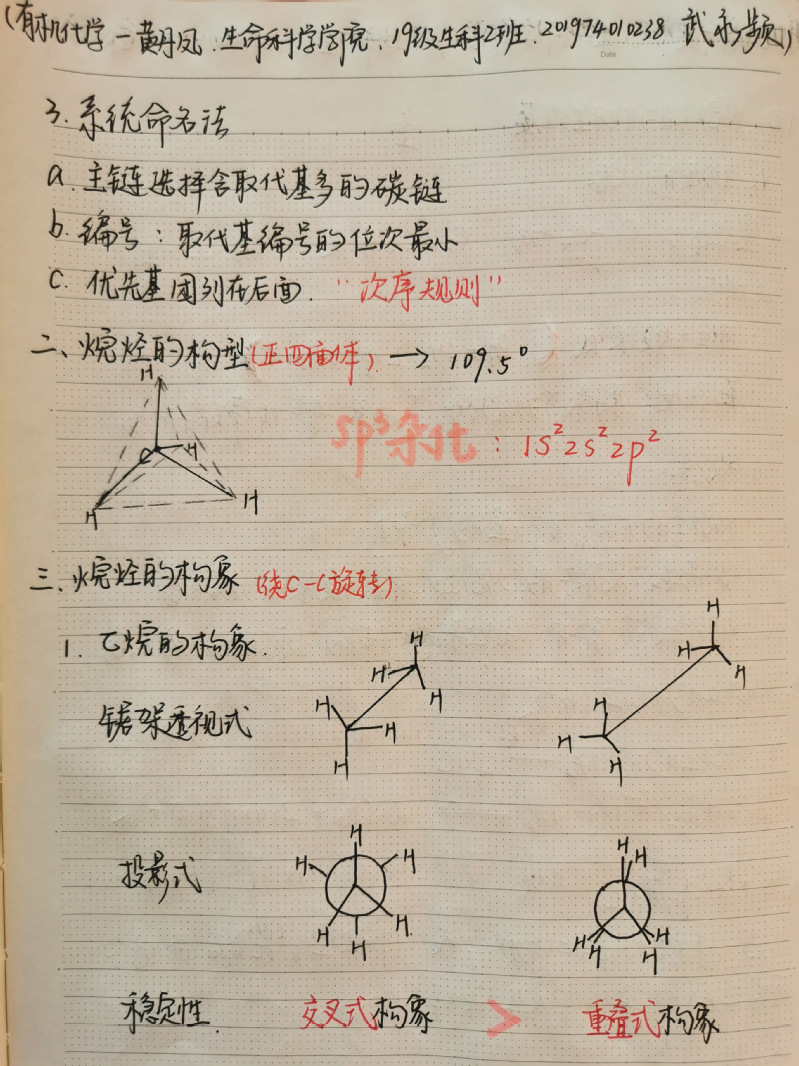 (有机化学-黄丹凤.生命科学学院、19级生科2班.201974010238 武永频)
Date
3.系统命名法
a.主链选择含取代基多的碳链
b.编号:取代基编号的位次最小
c.优先基团列在后面.“次序规则”
二、烷烃的构型(正四面体)→109.5°
H
C H
H H
sp³杂化:1s²2s²2p²
三、烷烃的构象(绕C-C旋转)
1.乙烷的构象.
H H
H H H H
锯架透视式 H H H
H H
H
投影式 H H H H H
H H H H H H
H
稳定性 交叉式构象 > 重叠式构象